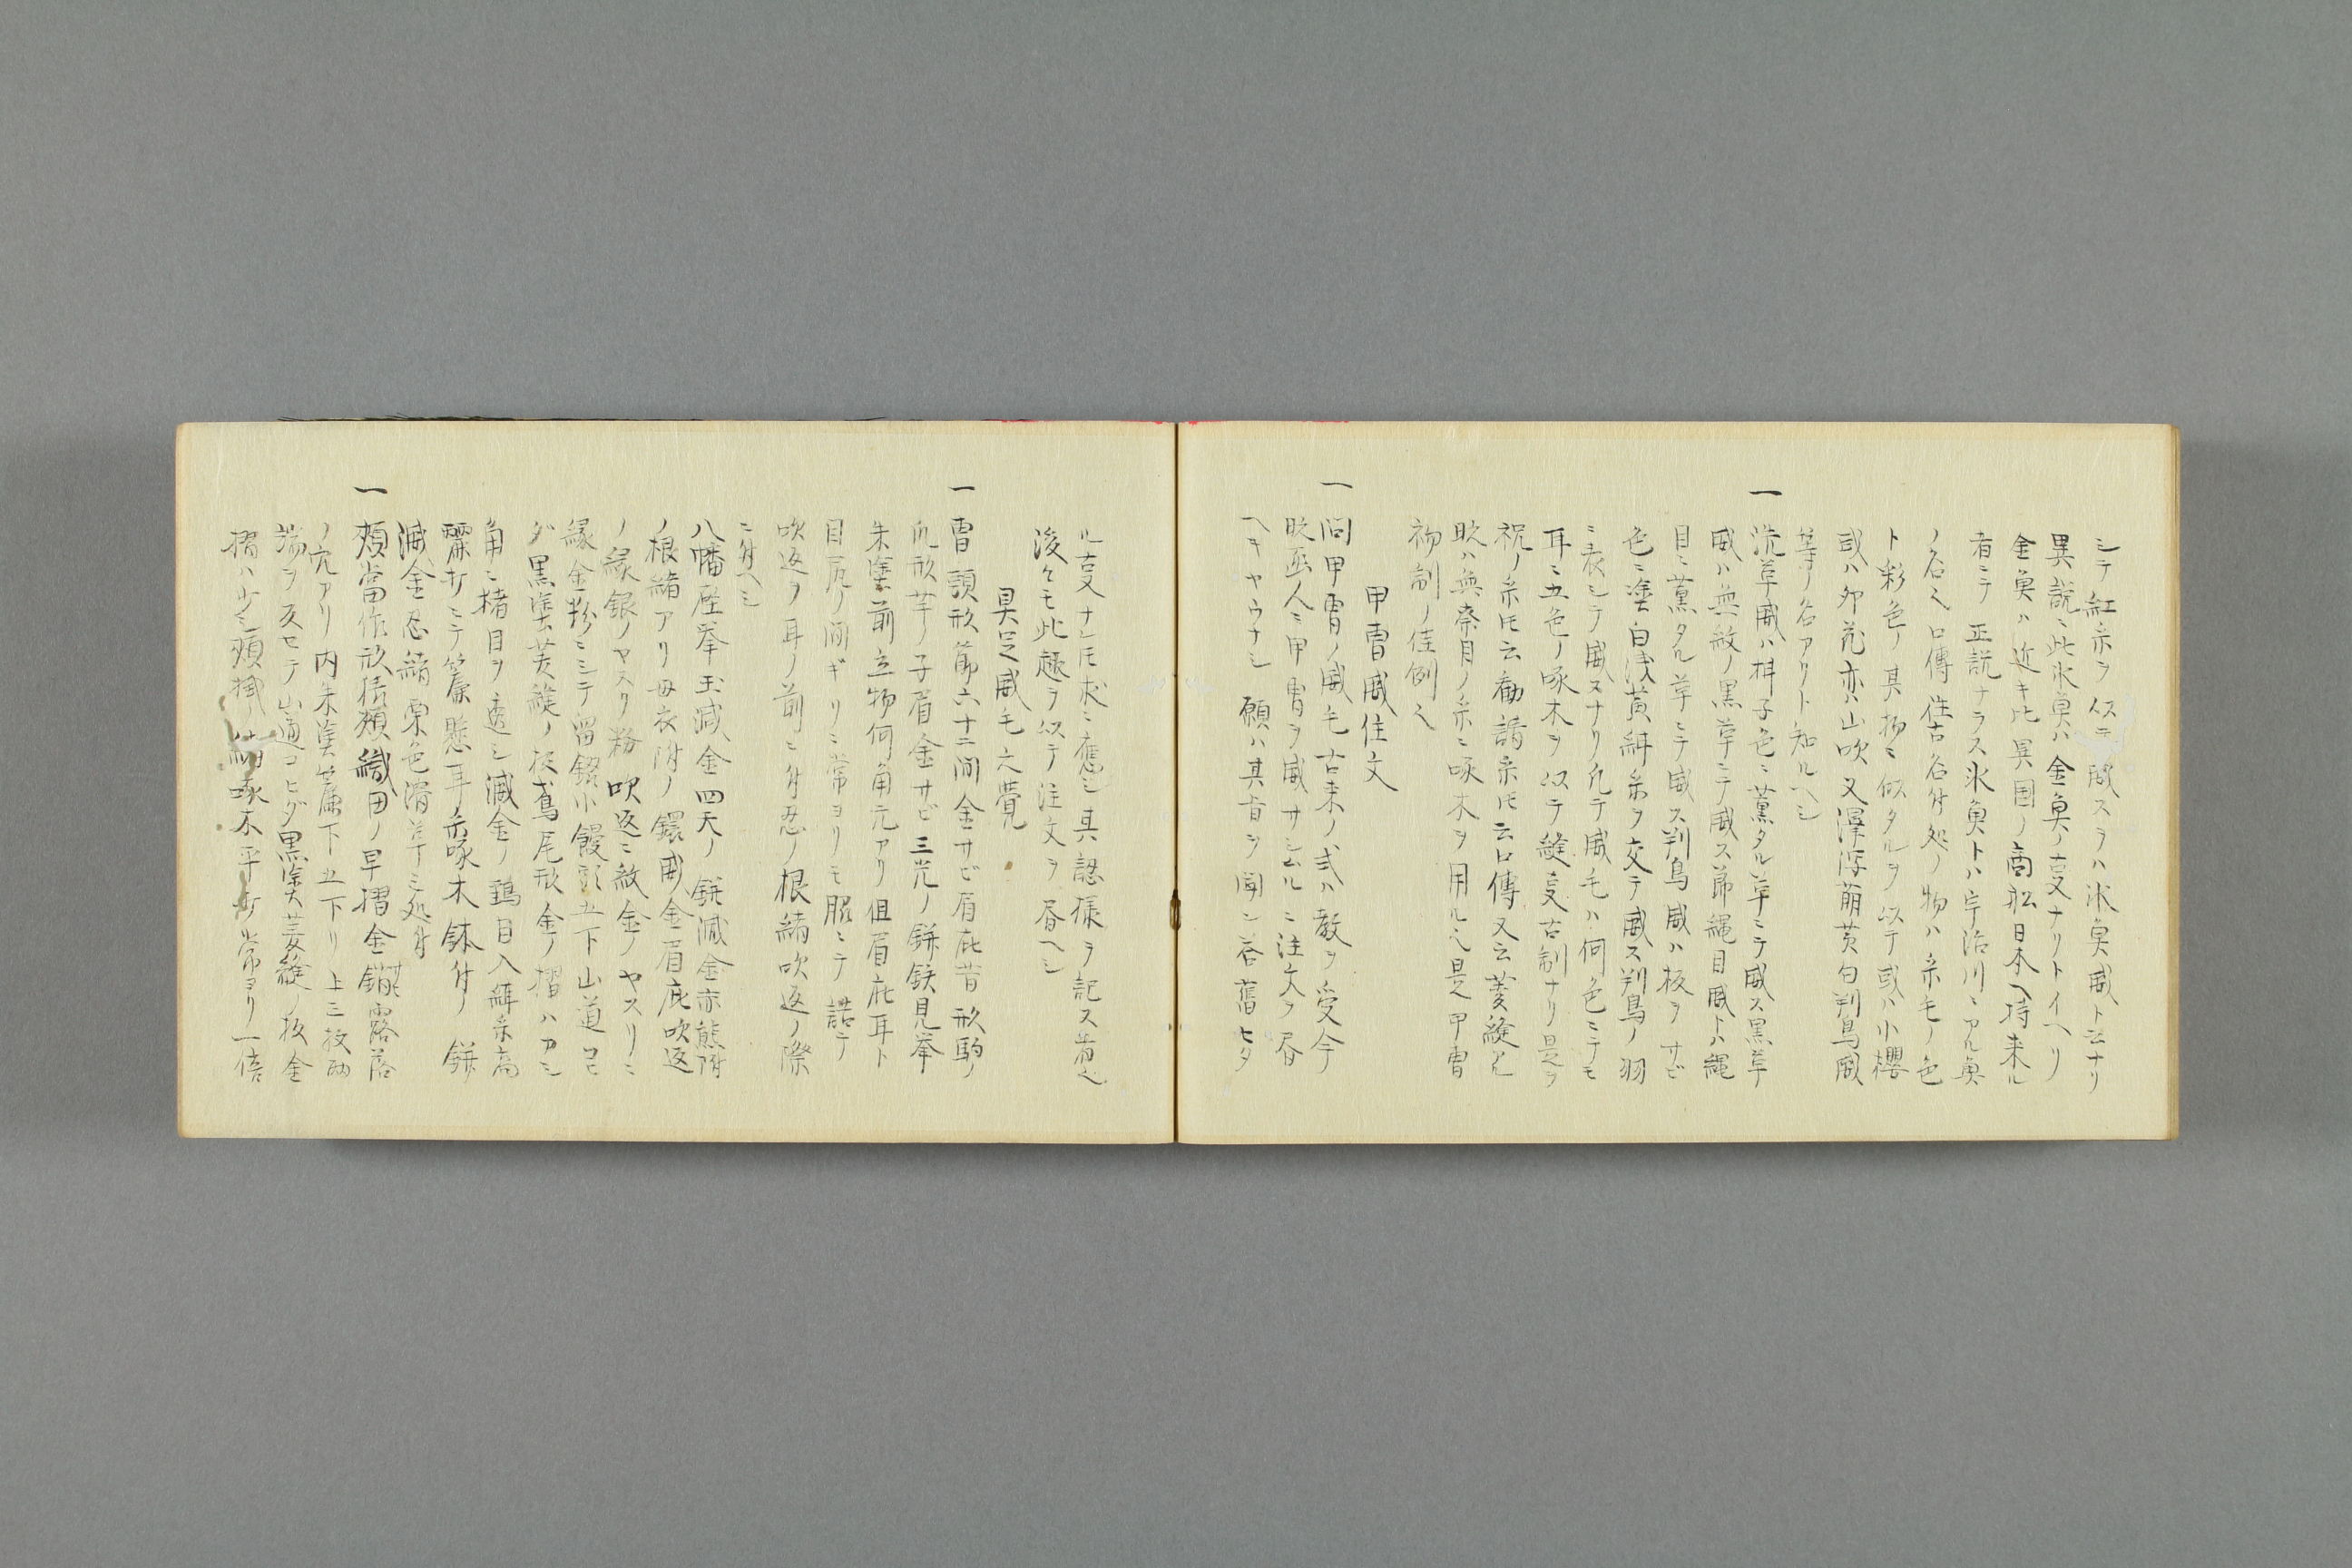 シテ紅糸ヲ以テ威スヲハ氷魚威ト云ナリ
異説ニ此氷魚ハ金魚ノ叓ナリトイヘリ
金魚ハ近キ比異国ノ商船日本ヘ持来ル
者ニテ正説ナラス氷魚トハ宇治川ニアル魚
ノ名也口傳往古名付処ノ物ハ糸毛ノ色
ト彩色ノ其物ニ似タルヲ以テ或ハ小櫻
或ハ卯花亦ハ山吹又澤瀉萠黄匂判鳥威
等ノ名アリト知ルヘシ
一 洗革威ハ柑子色ニ薫タル革ニテ威ス黒革
威ハ無紋ノ黒革ニテ威ス節縄目威トハ縄
目ニ薫タル革ニテ威ス判鳥威ハ板ヲサビ
色ニ塗白浅黄絓糸ヲ交テ威ス判鳥ノ羽
ニ表シテ威スナリ凢テ威毛ハ何色ニテモ
耳ニ五色ノ啄木ヲ以テ縫叓古制ナリ是ヲ
祝ノ糸圧云勧請糸圧云口傳又云菱縫
ハ無 月ノ糸ニ啄木ヲ用ル也是甲冑
初制ノ佳例也
甲冑威注文
一 問甲冑ノ威毛古来ノ式ハ教ヲ受今
匠人ニ甲冑ヲ威サシムルニ注文ヲ昏
ヘキヤウナシ願ハ其旨ヲ聞ン答舊セタ
ル叓ナレ圧求ニ應シ其認様ヲ記ス
後々モ此趣ヲ以テ注文ヲ昏ヘシ
具足威毛之覺
一 冑頭形筋六十二間金サビ眉庇昔形駒ノ
爪形芋ノ子眉金サビ三光ノ鋲鉄見挙
朱塗前立物何角元アリ但眉庇耳ト
目尻ノ間ギリニ常ヨリモ服ニテ詰テ
吹返ヲ耳ノ前ニ付忍ノ根緒吹返ノ際
ニ付ヘシ
八幡座挙玉滅金四天ノ鋲滅金赤熊附
ノ根緒アリ母衣附ノ鐶滅金眉庇吹返
ノ縁銀ノヤスリ粉吹返ニ紋金ノヤスリニ
縁金粉ニシテ畄 小饅頭五下山道コヒ
ダ黒塗菱縫ノ板鳶尾形金ノ摺ハカシ
角ニ猪目ヲ透シ滅金ノ鵐目入絓糸高
麗打ニテ籏懸耳糸啄木鉢付ノ鋲
滅金忍緒栗色滑革ニ処付
一 頬當作形猿頬織田ノ早摺金 露落
ノ穴アリ内朱漆簾下五下リ上三枚両
端ヲ反セテ山通コヒダ黒塗菱縫ノ板金
摺ハカシ頬掛ノ緒啄木平打常ヨリ一倍